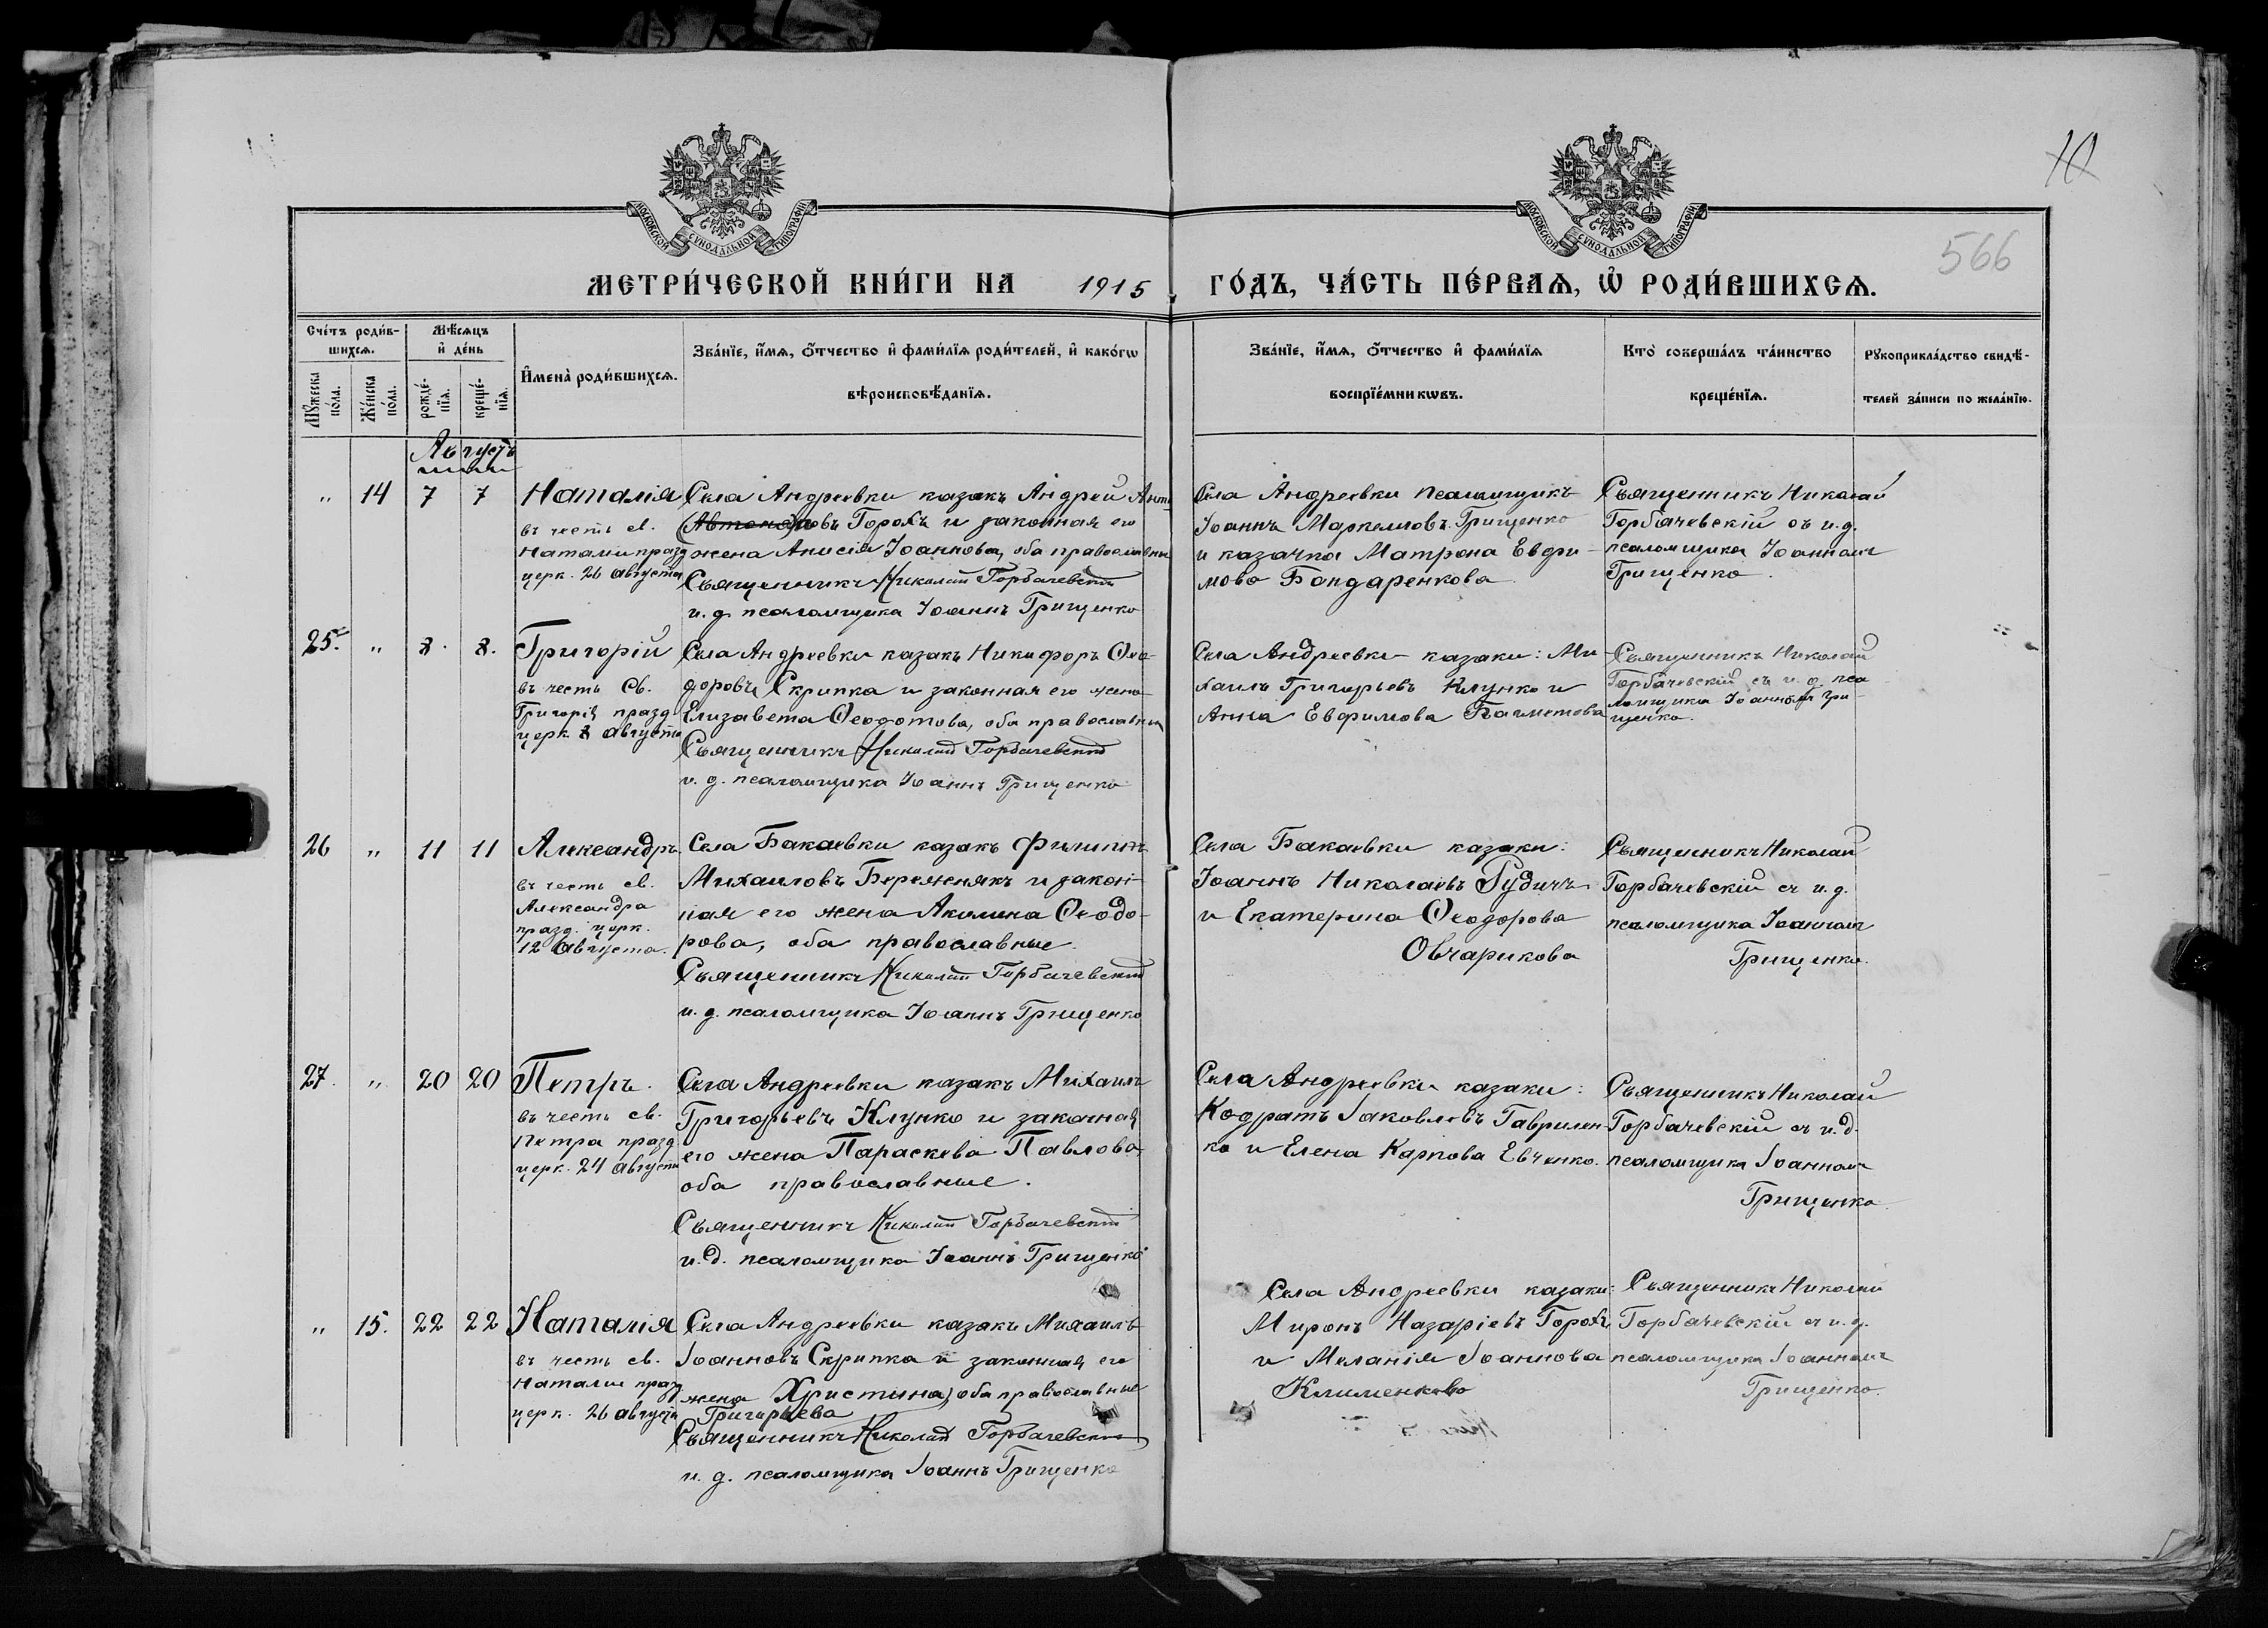 10
566
МОСКОВСКОЙ СѴНОДАЛЬНОЙ ТИПОГРАФІИ
МОСКОВСКОЙ СѴНОДАЛЬНОЙ ТИПОГРАФІИ
МЕТРИ́ЧЕСКОЙ КНИ́ГИ НА 1915 ГО́ДЪ, ЧА́СТЬ ПЕ́РВАѦ, Ѡ҆ РОДИ́ВШИХСѦ.
Сче́тъ роди́в-
шихсѧ.
Мꙋ́жеска по́ла.
Же́нска по́ла.
Мѣ́сѧцъ
и҆ де́нь
рожде́-
нїѧ.
креще́-
нїѧ.
И҆мена̀ роди́вшихсѧ.
Зва́нїе, и҆́мѧ, ѻ҆́тчество и҆ фами́лїѧ роди́телей, и҆ како́гѡ
вѣроисповѣ́данїѧ.
Зва́нїе, и҆́мѧ, ѻ҆́тчество и҆ фами́лїѧ
воспрїе́мникѡвъ.
Кто̀ соверша́лъ та́инство
креще́нїѧ.
Рꙋкоприкла́дство свидѣ́-
телей за́писи по жела́нїю.
Августъ
" 14 7 7 Наталія
въ честь св.
Наталіи празд
церк. 26 августа
Села Андреевки казакъ Андрей Анто
(Автономовъ Горохъ и законная его
жена Анисія Іоаннова, оба православные
Священникъ Николай Горбачевскій
и. д. псаломщика Іоаннъ Грищенко
Села Андреевки псаломщикъ
Іоаннъ Маркелловъ Грищенко
и казачка Матрона Евфи-
мова Бондаренкова
Священникъ Николай
Горбачевскій съ и. д.
псаломщика Іоанномъ
Грищенко.
25. " 8. 8. Григорій
въ честь св.
Григорія празд
церк. 8 августа
Села Андреевки казакъ Никифоръ Ѳео-
доровъ Скрипка и законная его жена
Елизавета Ѳеодотова, оба православные
Священникъ Николай Горбачевскій
и. д. псаломщика Іоаннъ Грищенко
Села Андреевки казаки: Ми-
хаилъ Григорьевъ Клунко и
Анна Евфимова
Священникъ Николай
Горбачевскій съ и. д. пса-
ломщика Іоанномъ Гри-
щенко.
26 " 11 11 Александръ
въ честь св.
Александра
празд. церк.
12 августа.
Села Бакаевки казакъ Филиппъ
Михаиловъ Бережнякъ и закон-
ная его жена Акилина Ѳеодо-
рова, оба православные.
Священникъ Николай Горбачевскій
и. д. псаломщика Іоаннъ Грищенко
Села Бакаевки казаки:
Іоаннъ Николаевъ Рудичъ
и Екатерина Ѳеодорова
Овчарикова
Священникъ Николай
Горбачевскій съ и. д.
псаломщика Іоанномъ
Грищенко.
27. " 20 20 Петръ.
въ честь св.
Петра празд
церк. 24 августа
Села Андреевки казакъ Михаилъ
Григорьевъ Клунко и законная
его жена Параскева Павлова,
оба православные.
Священникъ Николай Горбачевскій
и. д. псаломщика Іоаннъ Грищенко
Села Андреевки казаки:
Кодратъ Іаковлевъ Гаврилен-
ко и Елена Карпова Евченко.
Священникъ Николай
Горбачевскій съ и. д.
псаломщика Іоанномъ
Грищенко.
" 15. 22 22 Наталія
въ честь св.
Наталіи празд
церк. 26 августа
Села Андреевки казакъ Михаилъ
Іоанновъ Скрипка и законная его
жена Христина, оба православные
Григорьева
Священникъ Николай Горбачевскій
и. д. псаломщика Іоаннъ Грищенко
Села Андреевки казаки:
Миронъ Назаріевъ Горохъ
и Меланія Іоаннова
Клименкова
Священникъ Николай
Горбачевскій съ и. д.
псаломщика Іоанномъ
Грищенко.